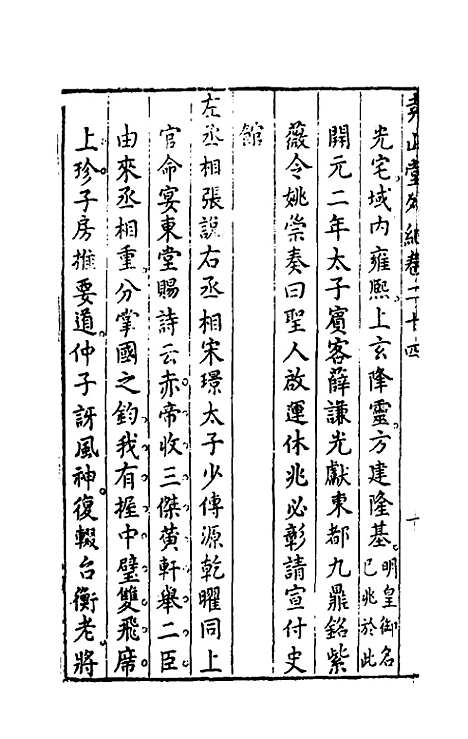 堯山堂外紀卷二十四
光宅域内雍熈上玄降靈方建隆基明皇御名已兆於此
開元二年太子賓客薛謙光獻東都九鼎銘紫
薇令姚崇奏曰聖人啟運休兆必彰請宣付史
館
左丞相張說右丞相宋璟太子少傅源乾曜同上
官命宴東堂賜詩云赤帝收三傑黃軒舉二臣
由來丞相重分掌國之鈞我有握中璧雙飛席
上珍子房推要道仲子訝風神復輟台衡老將